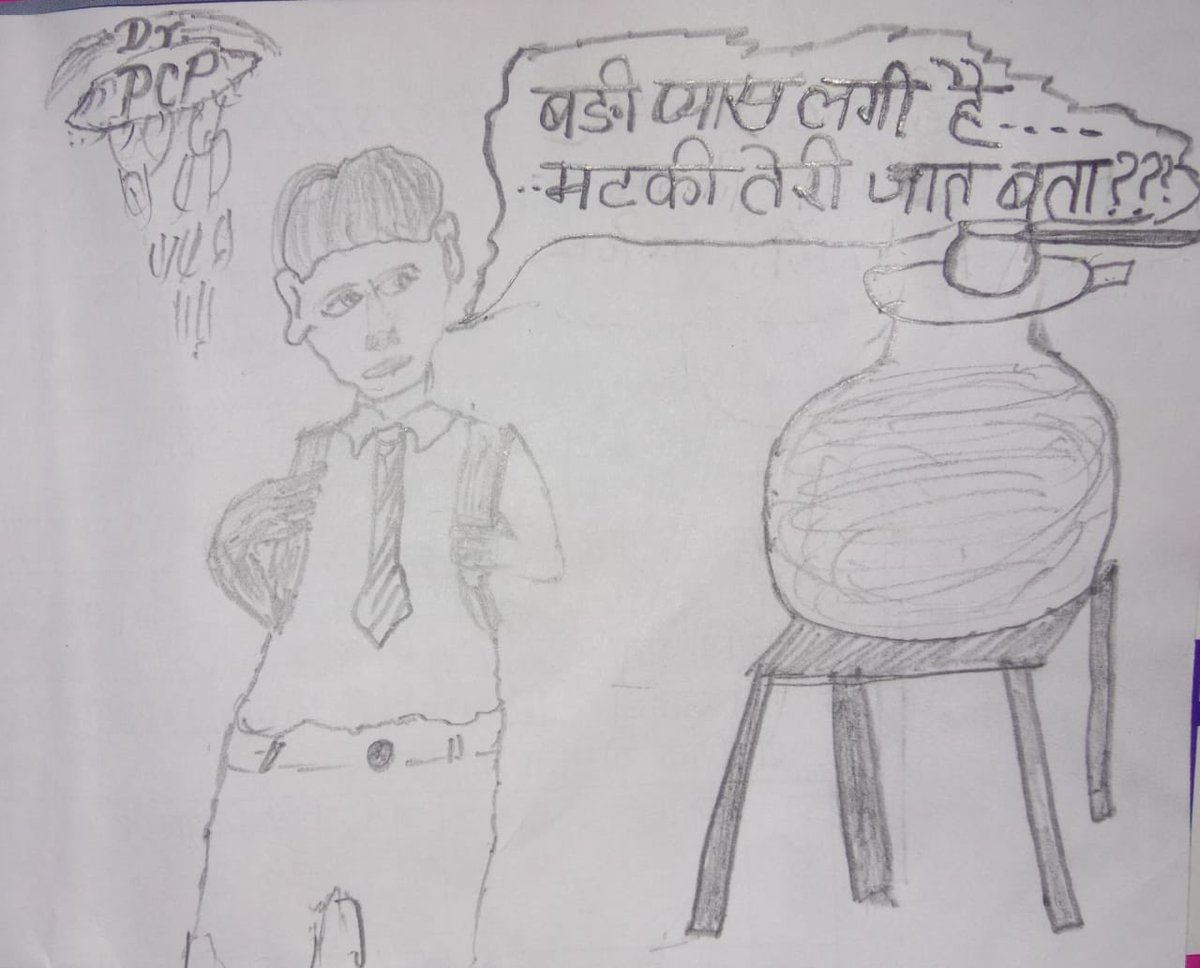 Dr.
PCP
बङी प्यास लगी है....
..मटकी तेरी जात बता???